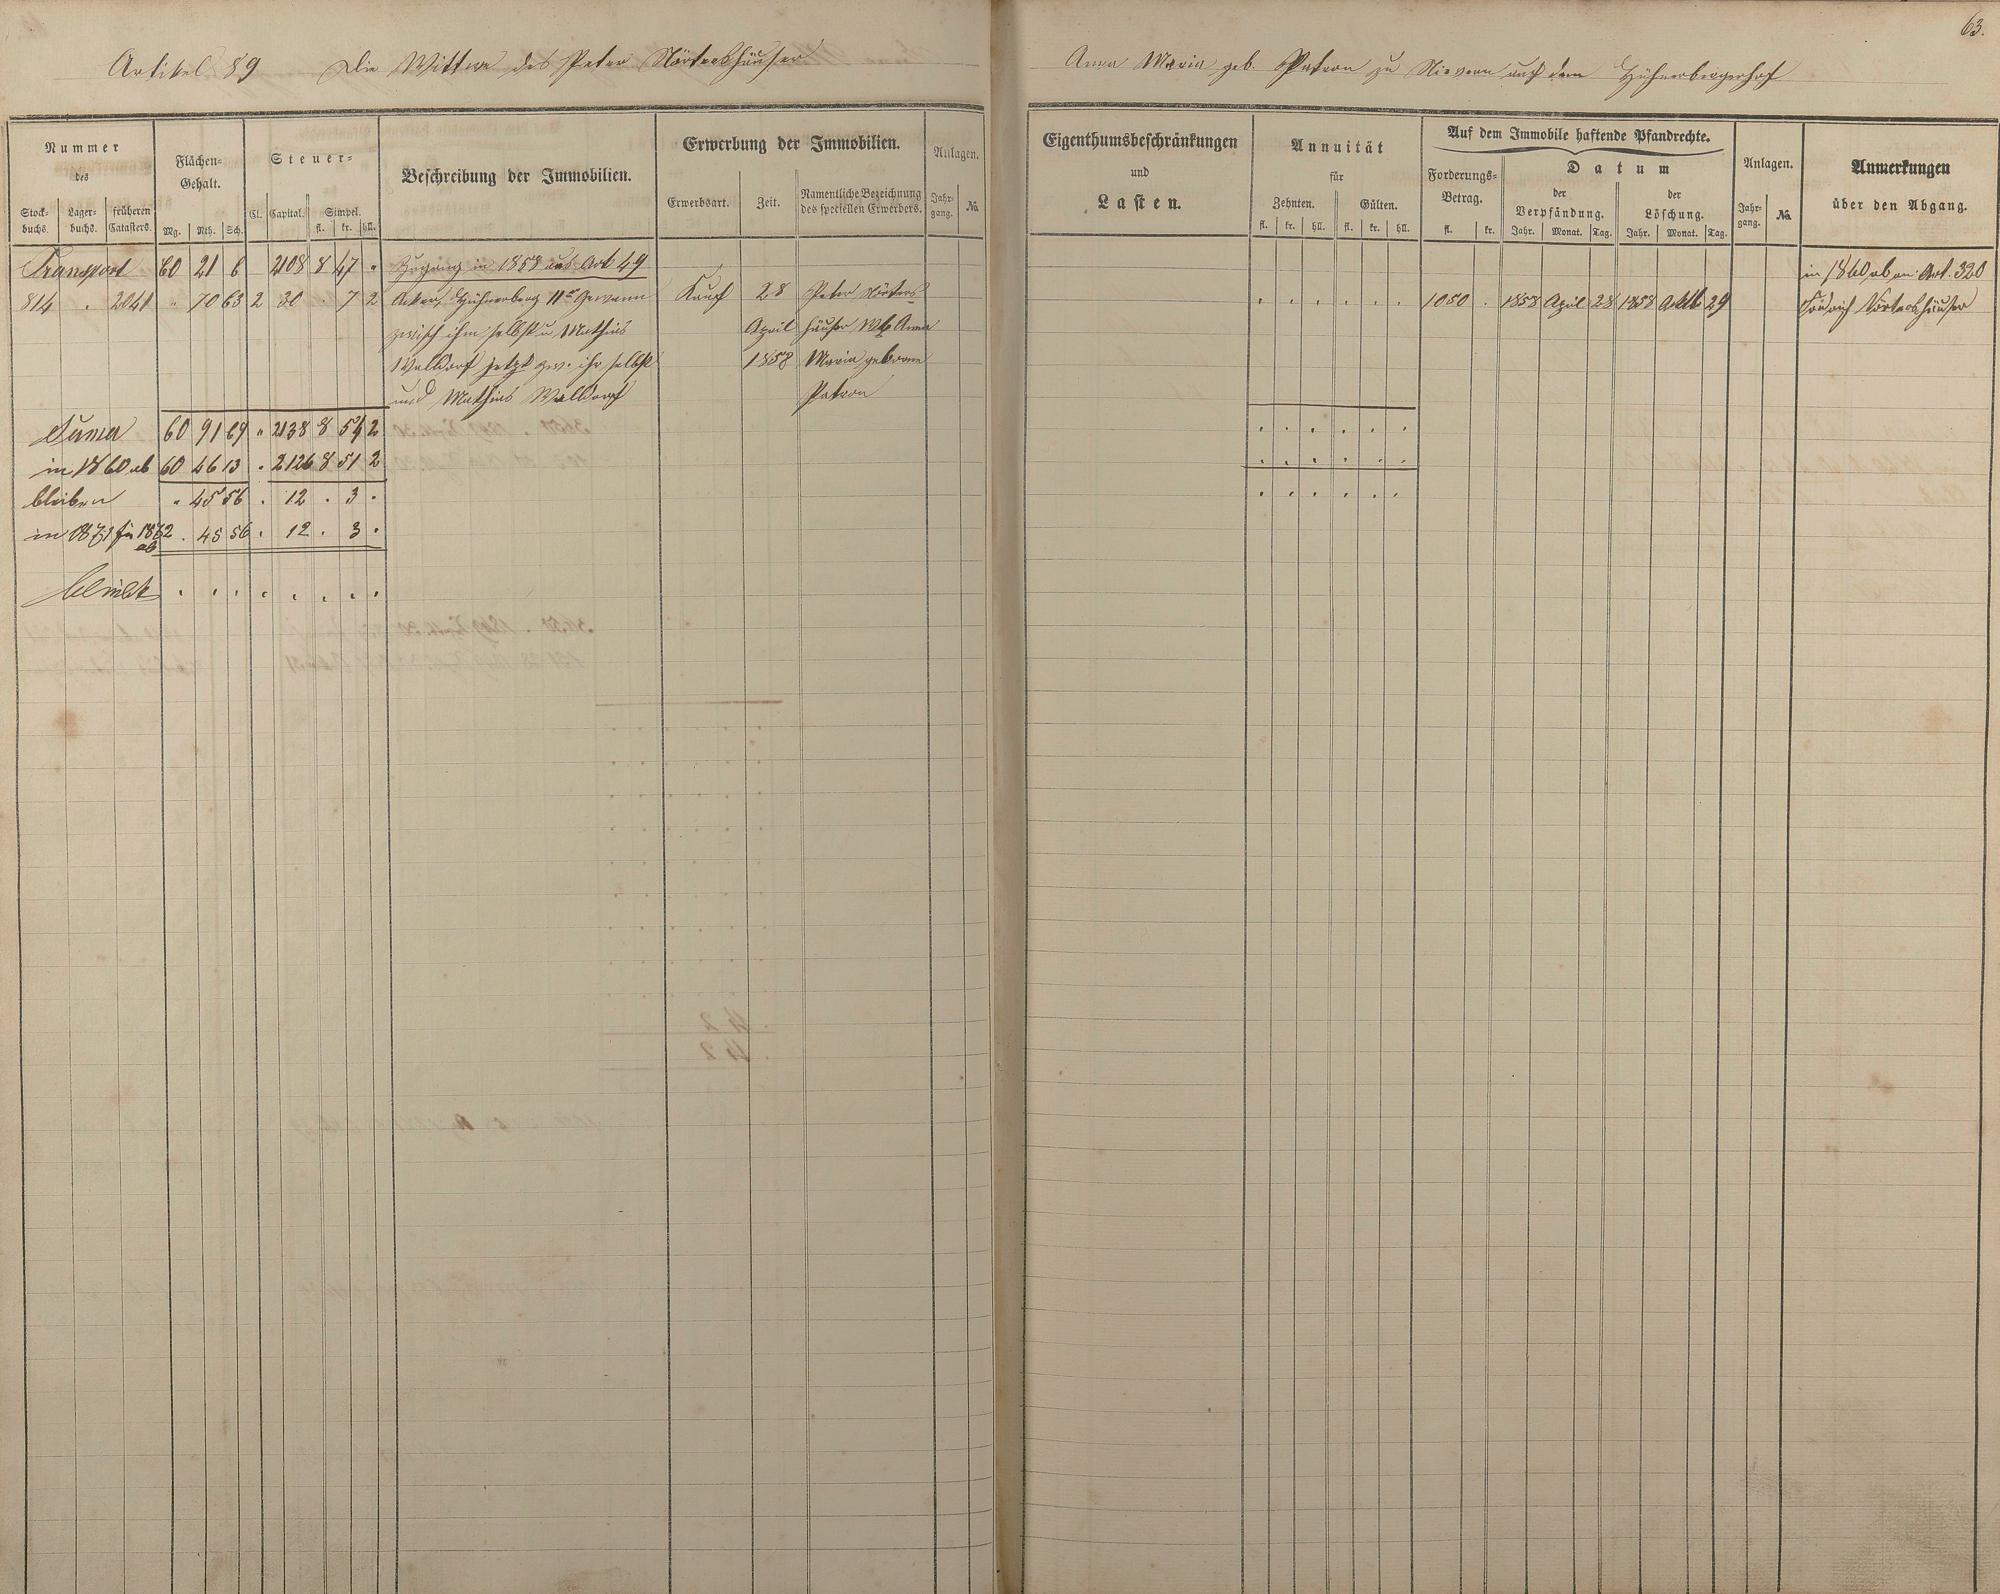 63.
Artikel 89 Die Wittwe des Peter Nörtershäuser Anna Maria geb. Patron zu Nievern auf dem Hühnerbergerhof
Nummer
des
Stock-
buchs.
Lager-
buchs.
früheren
Catasters.
Flächen-
Gehalt.
Mg. Rth. Sch.
Steuer-
Cl. Capital. Simpel.
fl. kr. hll.
Beschreibung der Immobilien.
Erwerbung der Immobilien.
Erwerbsart. Zeit. Namentliche Bezeichnung
des speciellen Erwerbers.
Anlagen.
Jahr-
gang.
No.
Eigenthumsbeschränkungen
und
Lasten.
Annuität
für
Zehnten. Gülten.
fl. kr. hll. fl. kr. hll.
Auf dem Immobile haftende Pfandrechte.
Forderungs-
Betrag.
fl. kr.
Datum
der
Verpfändung.
Jahr. Monat. Tag.
der
Löschung.
Jahr. Monat. Tag.
Anlagen.
Jahr-
gang.
No.
Anmerkungen
über den Abgang.
Transport 60 21 6 2108 8 47 " Zugang in 1858 aus Art 49 in 1860 ab an Art. 320
814 . 2041 " 70 63 2 30 . 7 2 Acker, Hühnerberg 11te Gewann Kauf 28 Peter Nörters . . . . . . 1050 . 1858 April 28 1858 29 Nörtershäuser
zwisch ihm selbst u. Mathias April häuser Wb Anna
Walldorf jetzt zw. ihr selbst 1858 Maria geborne
und Mathias Walldorf Patron
Suma 60 91 69 " 2138 8 54 2 . . . . . .
in 1860 ab 60 46 13 . 2126 8 51 2 . . . . . .
bleiben " 45 56 . 12 . 3 . . . . . . .
in 1871 für 1872 . 45 56 . 12 . 3 .
ab
bleibt . . . . . . . .